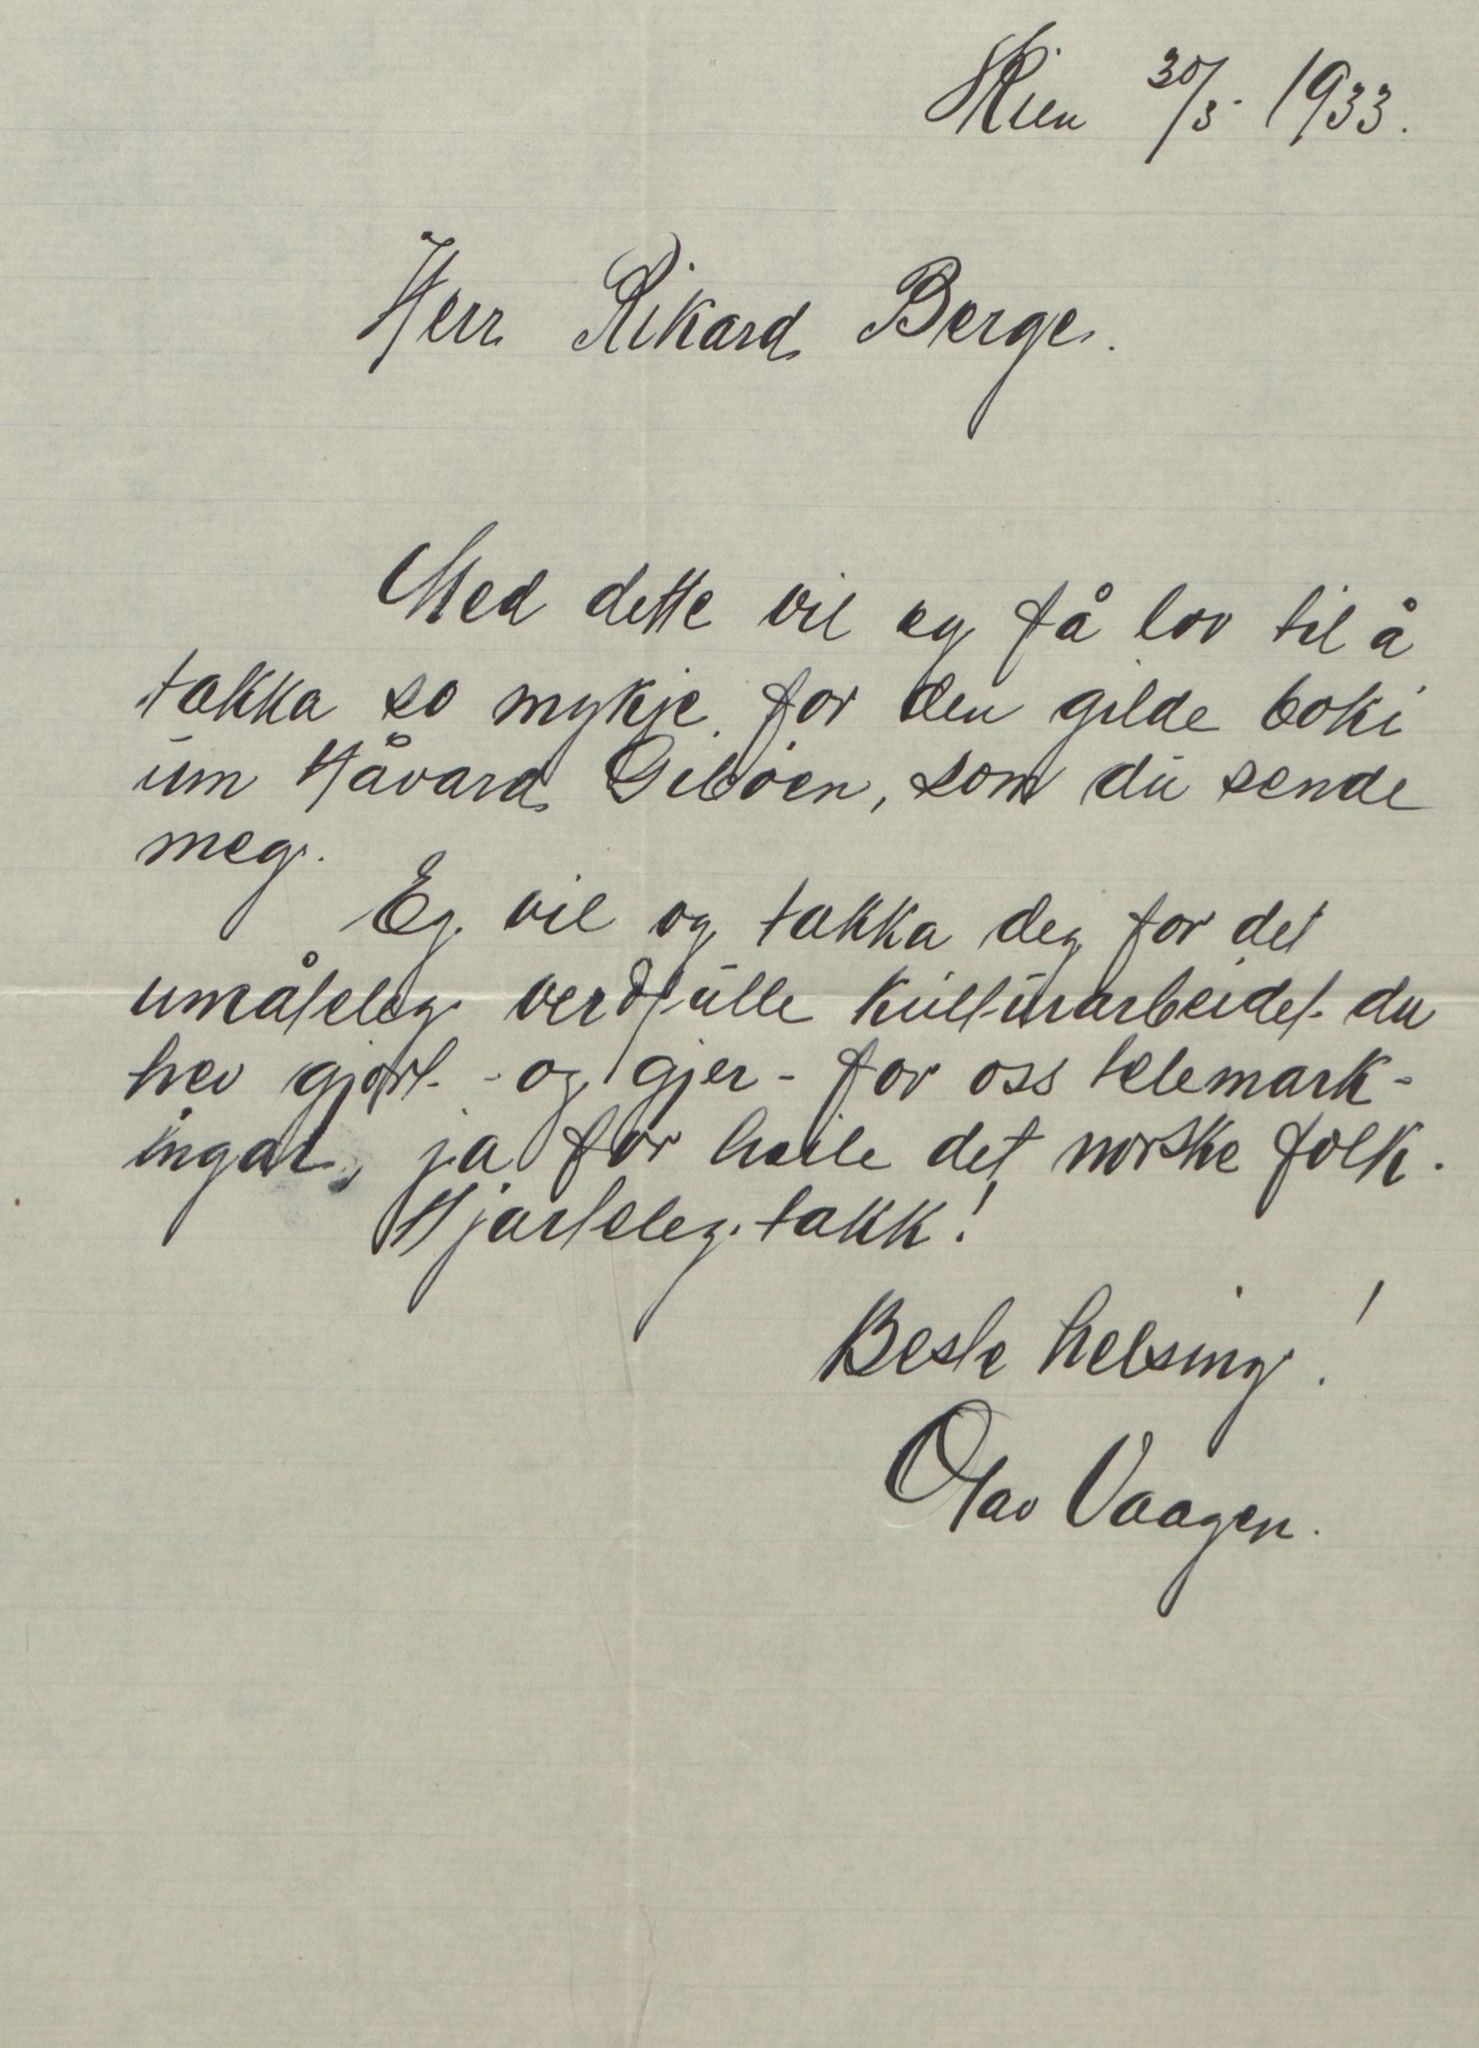 Skien 30/3. 1933.
Herr Rikard Berge.
Med dette vil eg få lov til å
takka so mykje for den gilde boki
um Håvard Gibøen, som du sende
meg.
Eg vil og takka deg for det
umåteleg verdfulle kulturarbeidet du
hev gjort - og gjer - for oss telemark-
ingar, ja for heile det norske folk.
Hjarteleg takk!
Beste helsing!
Olav Vaagen.